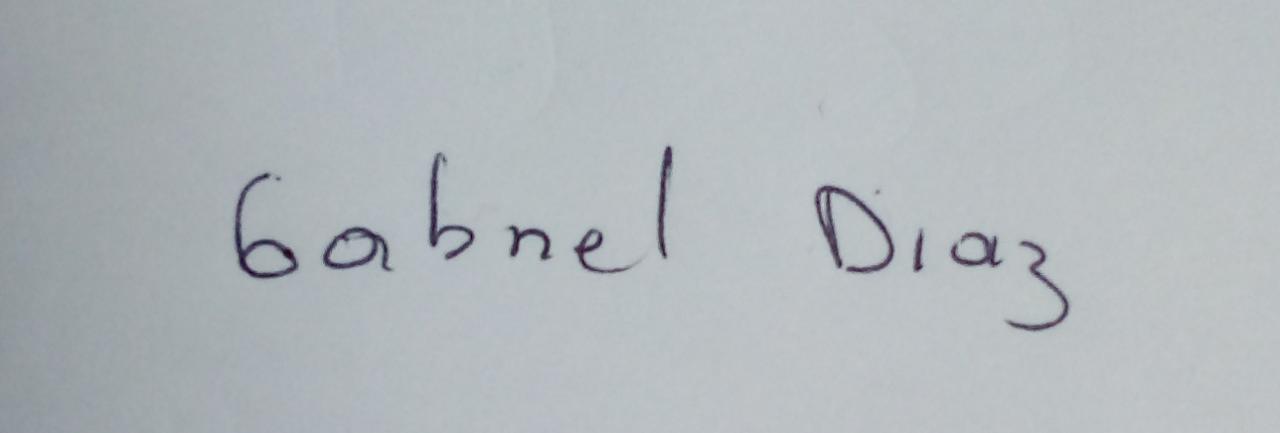 Gabriel Diaz